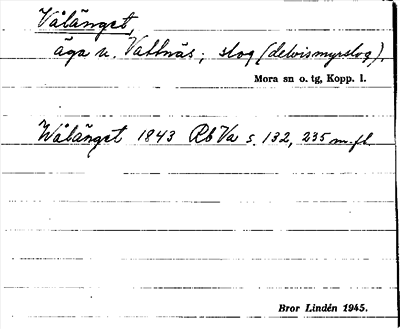 Vålänget,
äga u. Vattnäs; slog (delvis myrslog).
Mora sn o. tg, Kopp. l.
Wålänget 1843 Rb Va s. 132, 235 m. fl.
Bror Lindén 1945.